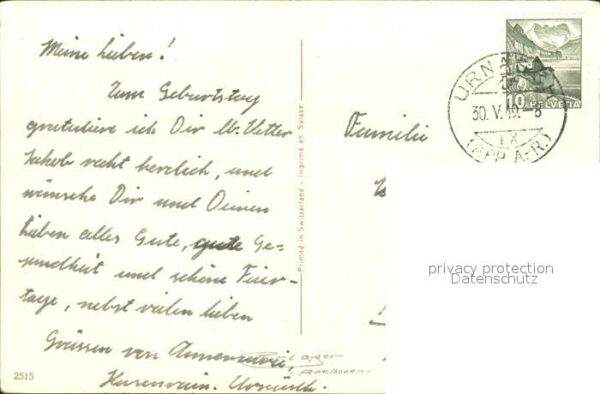 Meine Lieben!
Zum Geburtstag
gratuliere ich Dir lb. Vetter
Jakob recht herzlich, und
wünsche Dir und Deinen
lieben alles Gute, gute Ge=
sundheit und schöne Feier=
tage, nebst vielen lieben
Grüssen von Annemarie,
Urnäsch.
2515
Printed in Switzerland - Imprimé en Suisse
Familie
URNÄSCH
30.V.49.-8
IX
(APP. A.-R.)
10 HELVETIA
privacy protection
Datenschutz